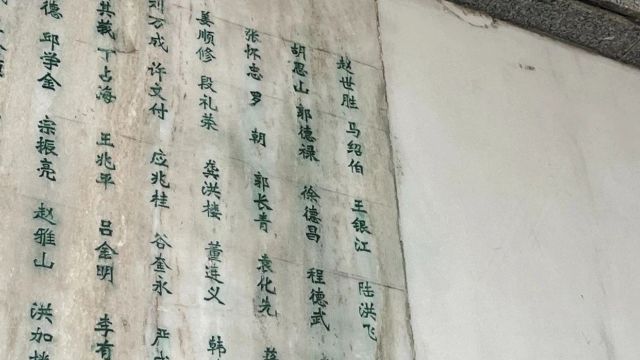 赵世胜 马绍伯 王银江 陆洪飞
胡恩山 郭德禄 徐德昌 程德武
张怀忠 罗朝 郭长青 袁化先
姜顺修 段礼荣 龚洪楼 董连义 韩
刘万成 许文付 应兆桂 谷奎永 严
丁占海 王兆平 吕金明 李有
德 邱学金 宗振亮 赵雅山 洪加